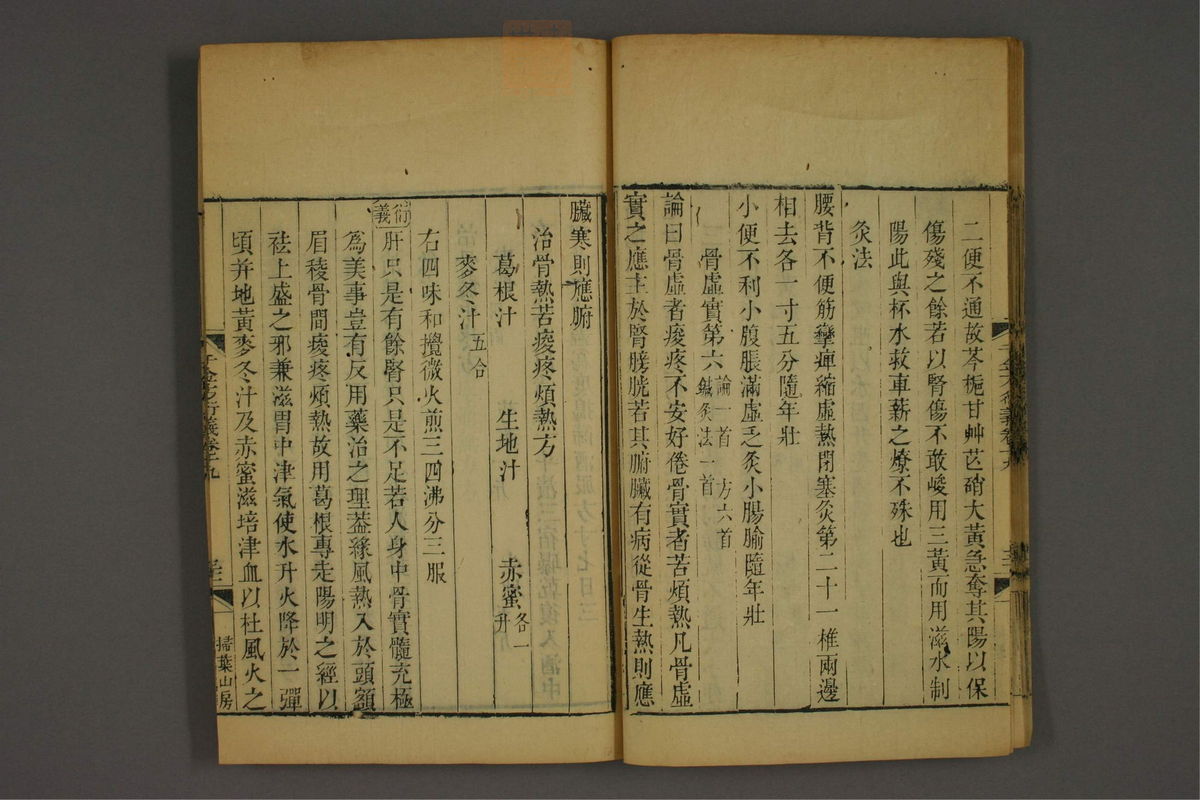 二便不通故芩梔甘艸芒硝大黃急奪其陽以保
傷殘之餘若以腎傷不敢峻用三黃而用滋水制
陽此與杯水救車薪之燎不殊也
灸法
腰背不便筋攣痺縮虛熱閉塞灸第二十一椎兩邊
相去各一寸五分隨年壯
小便不利小腹脹滿虛乏灸小腸腧隨年壯
骨虛實第六 論一首 方六首 鍼灸法一首
論曰骨虛者痠疼不安好倦骨實者苦煩熱凡骨虛
實之應主於腎膀胱若其腑臟有病從骨生熱則應
臟寒則應腑
治骨熱苦痠疼煩熱方
葛根汁 生地汁 赤蜜各一升
麥冬汁五合
右四味和攪微火煎三四沸分三服
衍義 肝只是有餘腎只是不足若人身中骨實髓充極
為美事豈有反用藥治之理葢緣風熱入於頭額
眉稜骨間痠疼煩熱故用葛根專走陽明之經以
祛上盛之邪兼滋胃中津氣使水升火降於一彈
頃并地黃麥冬汁及赤蜜滋培津血以杜風火之
千金方衍義卷十九
掃葉山房